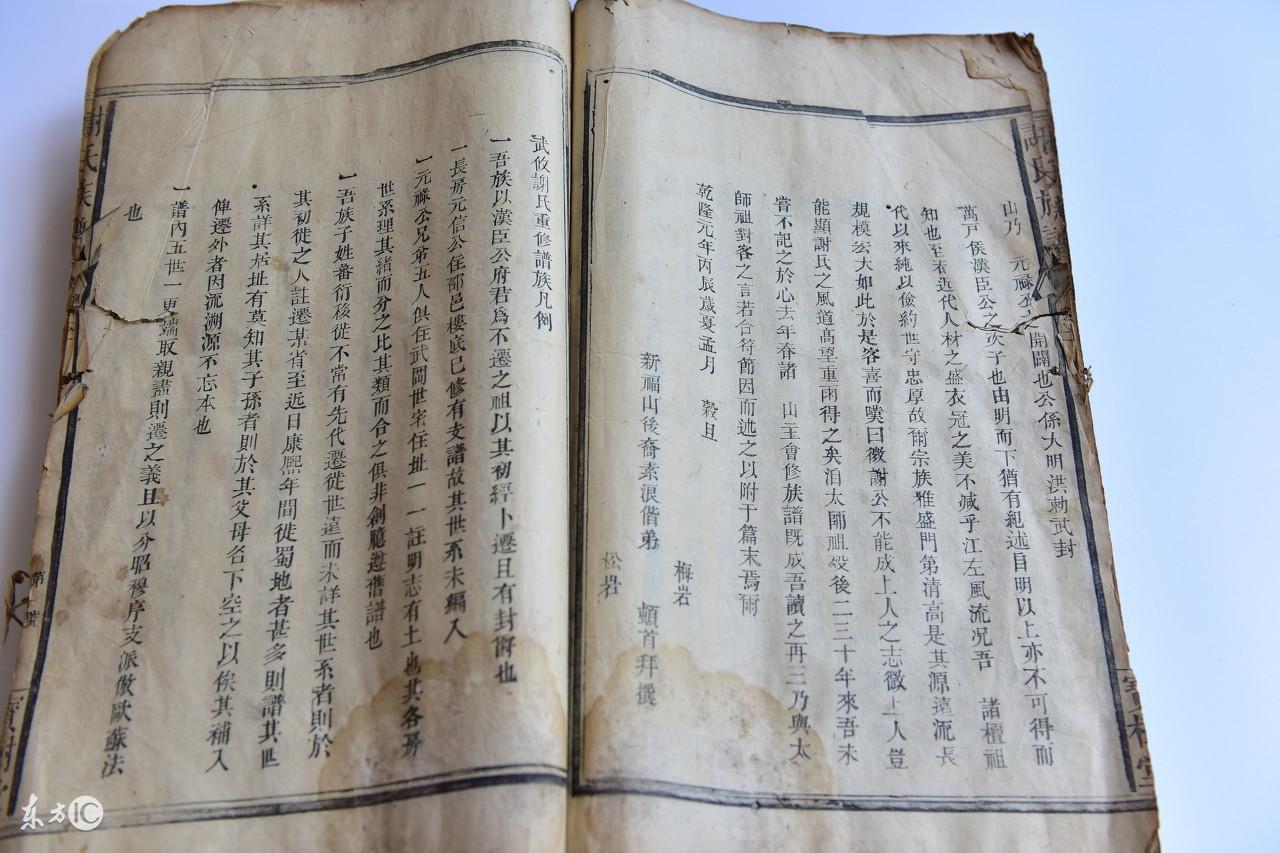 謝氏族譜
山乃 元祿公 開闢也公係大明洪勅武封
萬戸侯漢臣公之次子也由明而下猶有紀述目明以上亦不可得而
知也至若近代人材之盛衣冠之美不减乎江左風流况吾 諸檀祖
代以來純以儉約世守忠厚故爾宗族雅盛門第清高是其源遠流長
規模宏大如此於是客喜而嘆曰微謝公不能成上人之志微上人豈
能顯謝氏之風道高望重兩得之矣洎太師祖殁後二三十年來吾未
嘗不記之於心去年春諸 山主會修族譜既成吾讀之再三乃與太
師祖對客之言若合符節因而述之以附于篇末焉爾
乾隆元年丙辰歲夏孟月 穀旦
梅岩
新福山後裔素浪偕弟 頓首拜撰
松岩
寶樹堂
武攸謝氏重修譜族凡例
一吾族以漢臣公府君爲不遷之祖以其初經卜遷且有封衛也
一長房元信公住邵邑樓底已修有支譜故其世系未編入
一元祿公兄弟五人俱住武岡世宅住址一一註明志有土也其各房
世系理其緒而分之比其類而合之俱非創臆遵舊譜也
一吾族子姓蕃衍移徙不常有先代遷徙世遠而未詳其世系者則於
其初徙之人註遷某省至近日康熙年間徙蜀地者甚多則譜其世
系詳其居址有莫知其子孫者則於其父母名下空之以俟其補入
俾遷外者因流溯源不忘本也
一譜內五世一更端取親盡則遷之義且以分昭穆序支派倣歐蘇法
也
謝氏族
東方IC